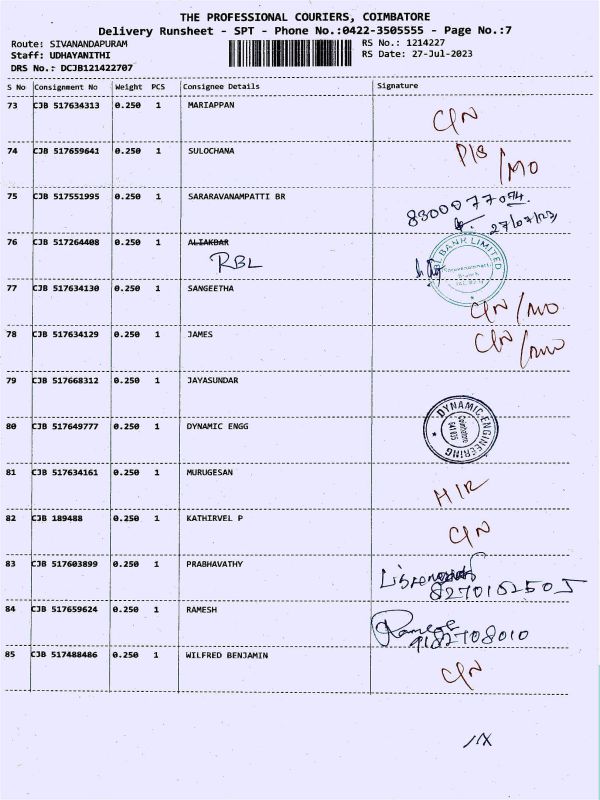 THE PROFESSIONAL COURIERS, COIMBATORE
Delivery Runsheet - SPT - Phone No.:0422-3505555 - Page No.:7
Route: SIVANANDAPURAM RS No.: 1214227
Staff: UDHAYANITHI RS Date: 27-Jul-2023
DRS No.: DCJB121422707
S No Consignment No Weight PCS Consignee Details Signature
73 CJB 517634313 0.250 1 MARIAPPAN C/N
74 CJB 517659641 0.250 1 SULOCHANA P/S /MO
75 CJB 517551995 0.250 1 SARARAVANAMPATTI BR
27/07/23
76 CJB 517264408 0.250 1 ALIAKBAR
RBL
BANK LIMITED
77 CJB 517634130 0.250 1 SANGEETHA C/N/MO
78 CJB 517634129 0.250 1 JAMES C/N/MO
79 CJB 517668312 0.250 1 JAYASUNDAR
80 CJB 517649777 0.250 1 DYNAMIC ENGG
DYNAMIC ENGINEERING
Coimbatore
81 CJB 517634161 0.250 1 MURUGESAN
82 CJB 189488 0.250 1 KATHIRVEL P C/N
83 CJB 517603899 0.250 1 PRABHAVATHY
84 CJB 517659624 0.250 1 RAMESH
Ramesh
85 CJB 517488486 0.250 1 WILFRED BENJAMIN C/N